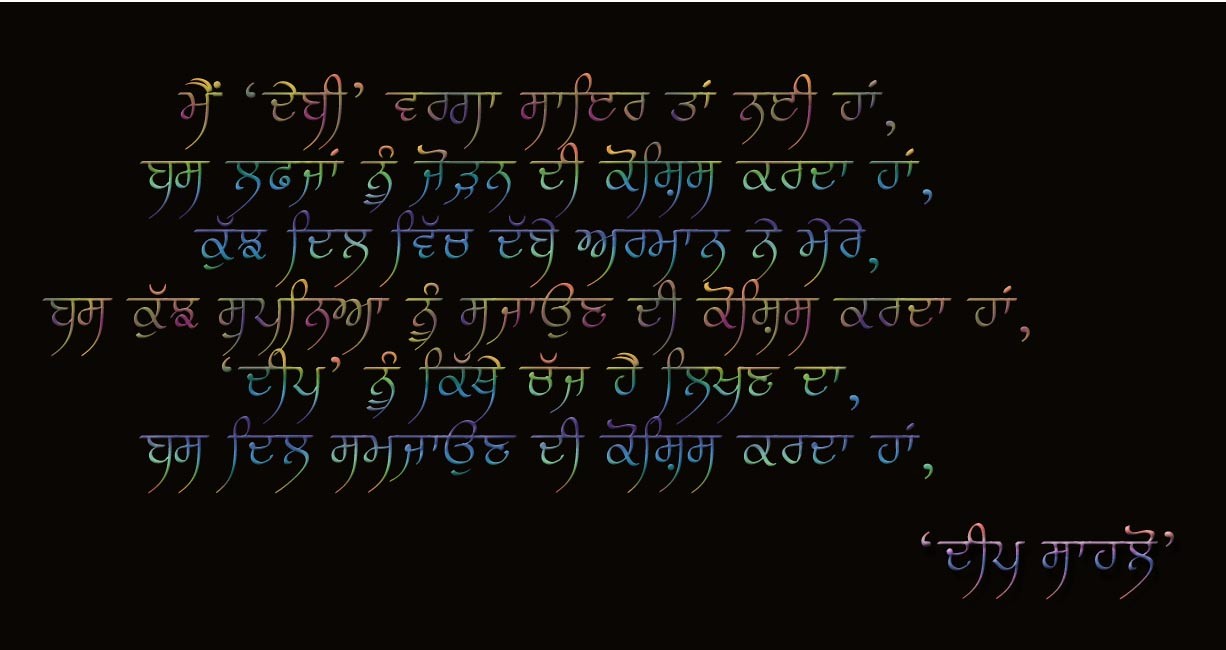 ਮੈਂ ‘ਦੇਬੀ’ ਵਰਗਾ ਸਾਇਰ ਤਾਂ ਨਈ ਹਾਂ,
ਬਸ ਲਫਜਾਂ ਨੂੰ ਜੋੜਨ ਦੀ ਕੋਸ਼ਿਸ ਕਰਦਾ ਹਾਂ,
ਕੁੱਝ ਦਿਲ ਵਿੱਚ ਦੱਬੇ ਅਰਮਾਨ ਨੇ ਮੇਰੇ,
ਬਸ ਕੁੱਝ ਸੁਪਨਿਆ ਨੂੰ ਸਜਾਉਣ ਦੀ ਕੋਸ਼ਿਸ ਕਰਦਾ ਹਾਂ,
‘ਦੀਪ’ ਨੂੰ ਕਿੱਥੇ ਚੱਜ ਹੈ ਲਿਖਣ ਦਾ,
ਬਸ ਦਿਲ ਸਮਜਾਉਣ ਦੀ ਕੋਸ਼ਿਸ ਕਰਦਾ ਹਾਂ,
‘ਦੀਪ ਸਾਹਲੋ’